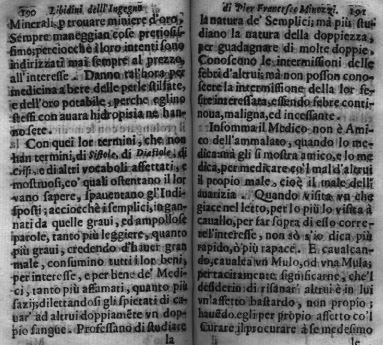 190 Libidini dell'Ingegno
Minerali, p trouare miniere d'oro.
Sempre maneggian cose pretiosis-
sime; perciocchè i loro intenti sono
indirizzati mai sempre al prezzo,
all'interesse. Danno tal'hora per
medicina a bere delle perle stillate,
e dell'oro potabile, perche eglino
stessi con auara hidropisia ne han-
no sete.
Con quei lor termini, che non
han termini, di Sistole, di Diastole, di
Crisi, e di altri vocaboli affettati, e
mostruosi, co' quali ostentano il lor
vano sapere, spauentano gl'Indi-
sposti; acciocchè i semplici, ingan-
nati da quelle graui, ed ampollose
parole, tanto più leggiere, quanto
più graui, credendo d'hauer gran
male, consumino tutti i lor beni,
per interesse, e per bene de' Medi-
ci, tanto più affamati, quanto più
sazij, dilettandosi gli spietati di ca-
uar ad altrui doppiamẽte vn dop-
pio sangue. Professano di studiare
la
di Pier Francesco Minozzi. 191
la natura de' Semplici; ma più stu-
diano la natura della doppiezza,
per guadagnare di molte doppie.
Conoscono le intermissioni delle
febri d'altrui; ma non posson cono-
scere la intermissione della lor fe-
bre interessata, essendo febre conti-
noua, maligna, ed incessante.
Insomma il Medico non è Ami-
co dell'ammalato, quando lo me-
dica: ma gli si mostra amico, e lo me
dica, per medicare co'l mal d'altrui
il proprio male, cioè il male dell'
auarizia. Quando visita vn che
giace nel letto, per lo più lo visita à
cauallo, per far sopra di esso corre-
re l'interesse, non sò s'io dica più
rapido, ò più rapace. E caualcan-
do, caualca vn Mulo, od vna Mula;
per tacitamente significarne, che'l
desiderio di risanar altrui è in lui
vn'affetto bastardo, non proprio;
hauẽdo egli per proprio affetto co'l
Curare il procurare à se medesimo
la